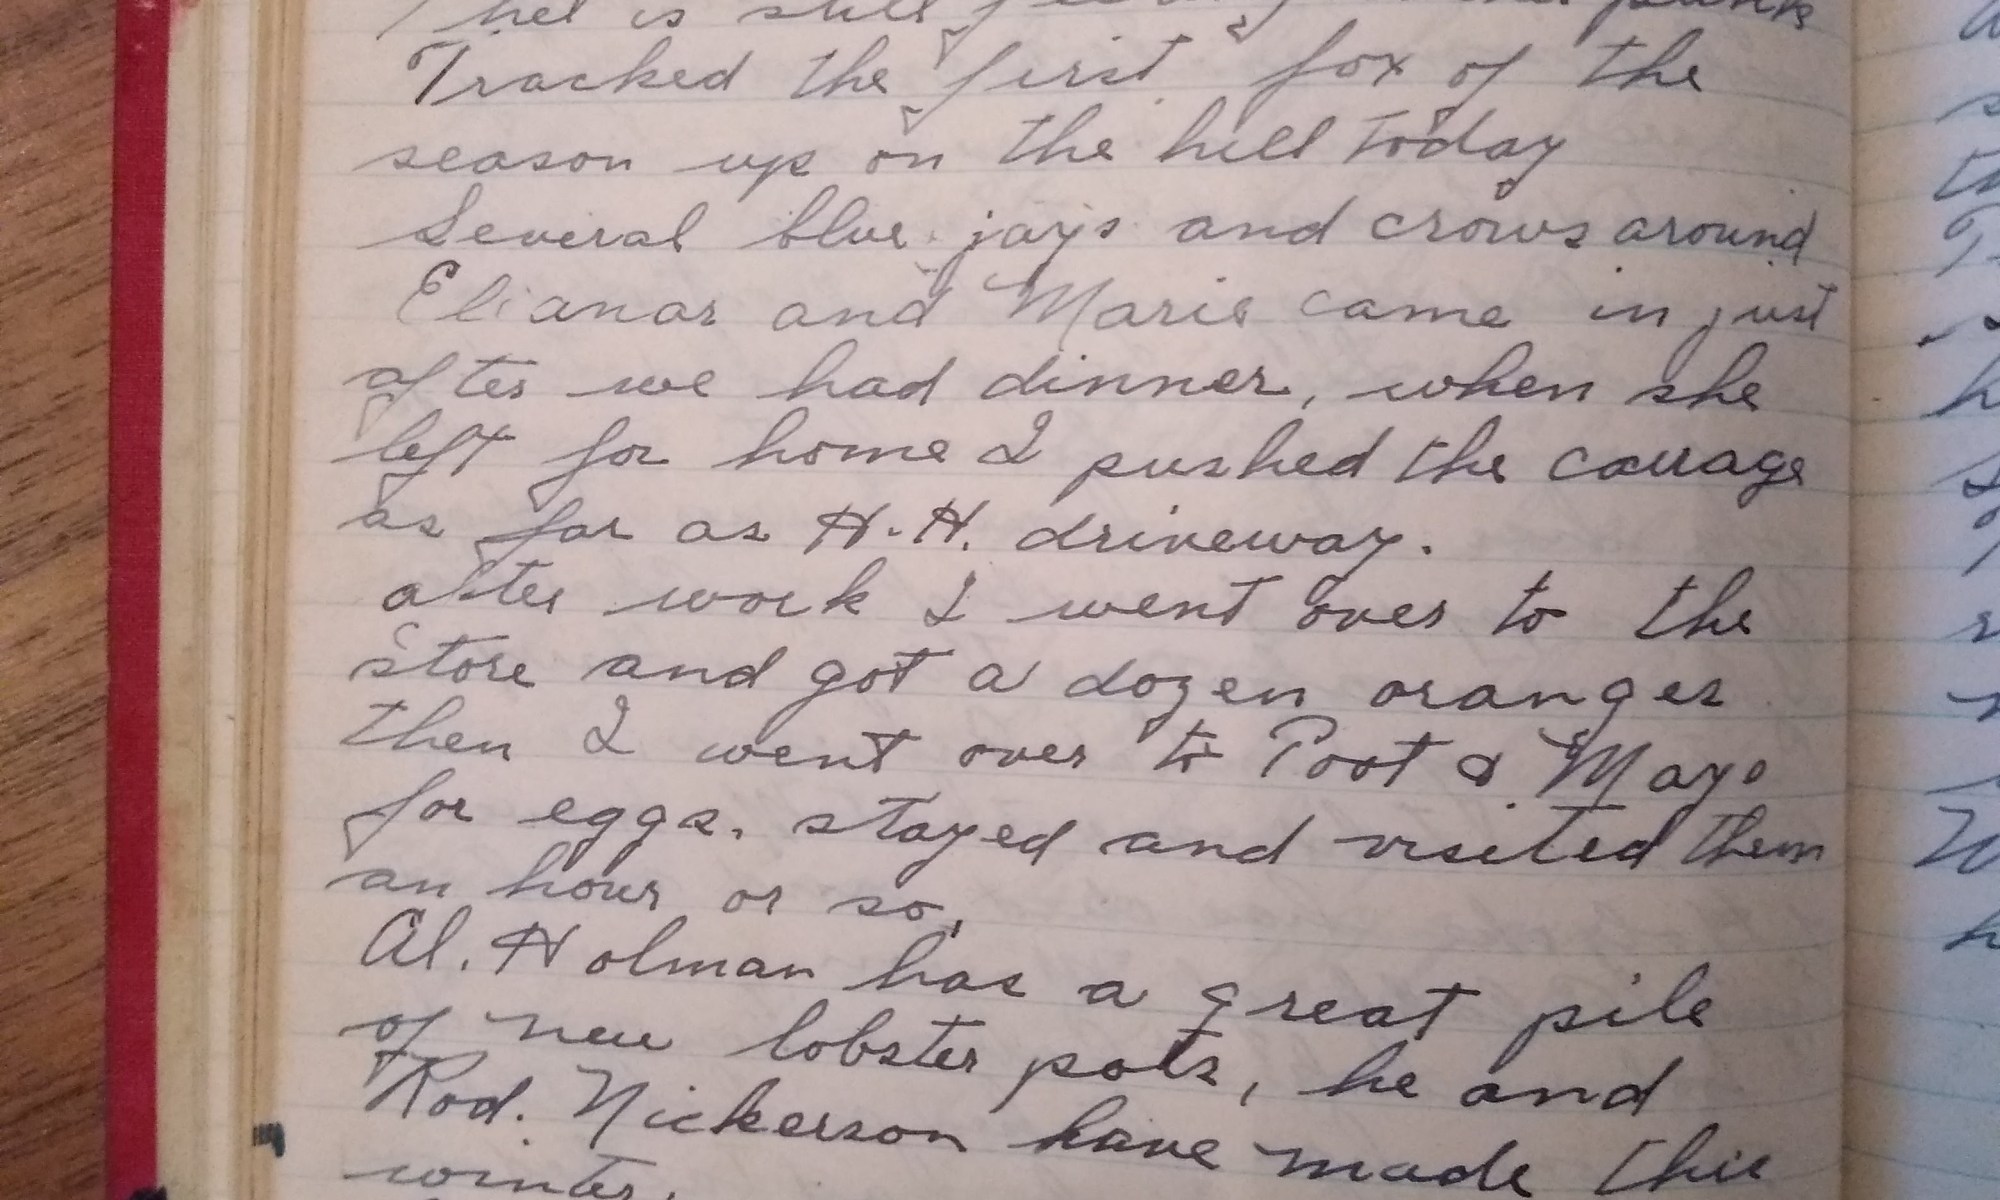 is still
Tracked the first fox of the
season up on the hill today
Several blue jays and crows around
Elianar and Marie came in just
after we had dinner, when she
left for home I pushed the carrage
as far as H.H. driveway.
after work I went over to the
store and got a dozen oranges
then I went over to Poot & Mays
for eggs, stayed and visited them
an hour or so,
Al. Holman has a great pile
of new lobster pots, he and
Rod. Nickerson have made this
winter.